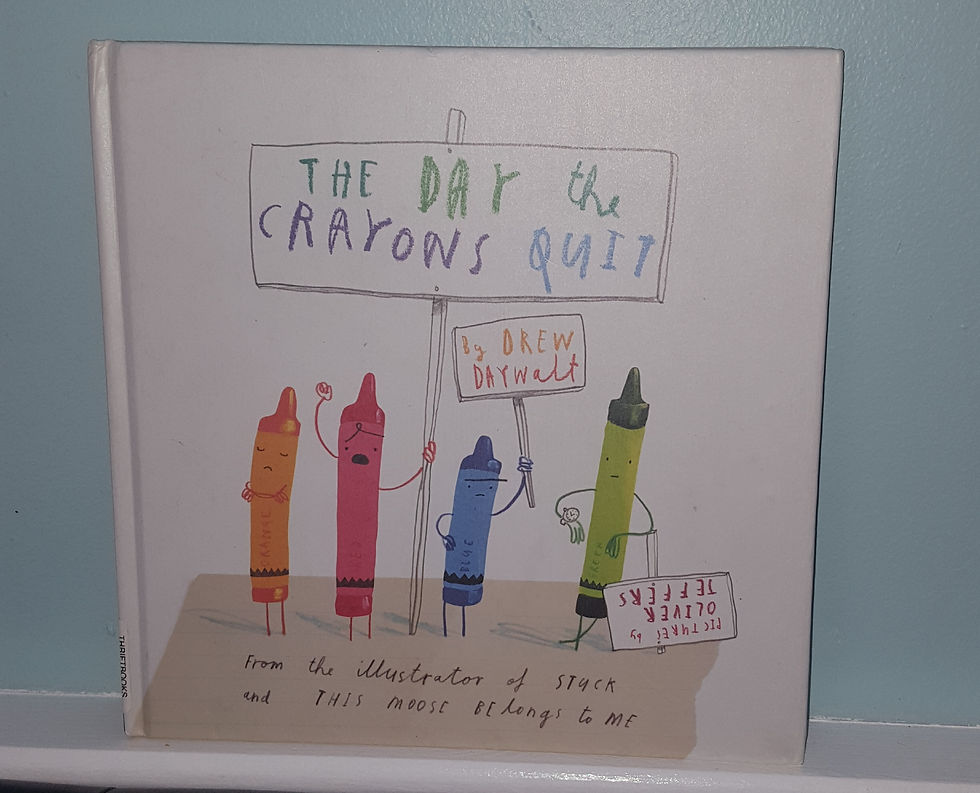 THE DAY the
CRAYONS QUIT
By DREW
DAYWalt
ORANGE
RED
BLUE
GREEN
PICTURES by
OLIVER
JEFFERS
From the illustrator of STUCK
and THIS MOOSE BElongs to ME
THRIFTBOOKS